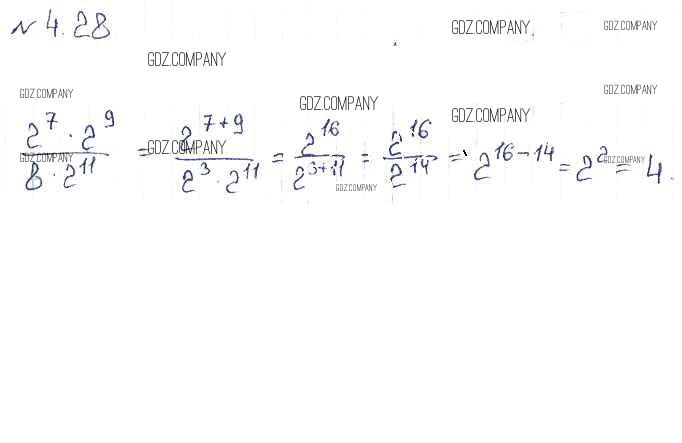 № 4.28
GDZ.COMPANY
GDZ.COMPANY
GDZ.COMPANY
GDZ.COMPANY
GDZ.COMPANY
GDZ.COMPANY
GDZ.COMPANY
2^7 · 2^9 / 8 · 2^11 = 2^(7+9) / 2^3 · 2^11 = 2^16 / 2^(3+11) = 2^16 / 2^14 = 2^(16-14) = 2^2 = 4.
GDZ.COMPANY
GDZ.COMPANY
GDZ.COMPANY
GDZ.COMPANY